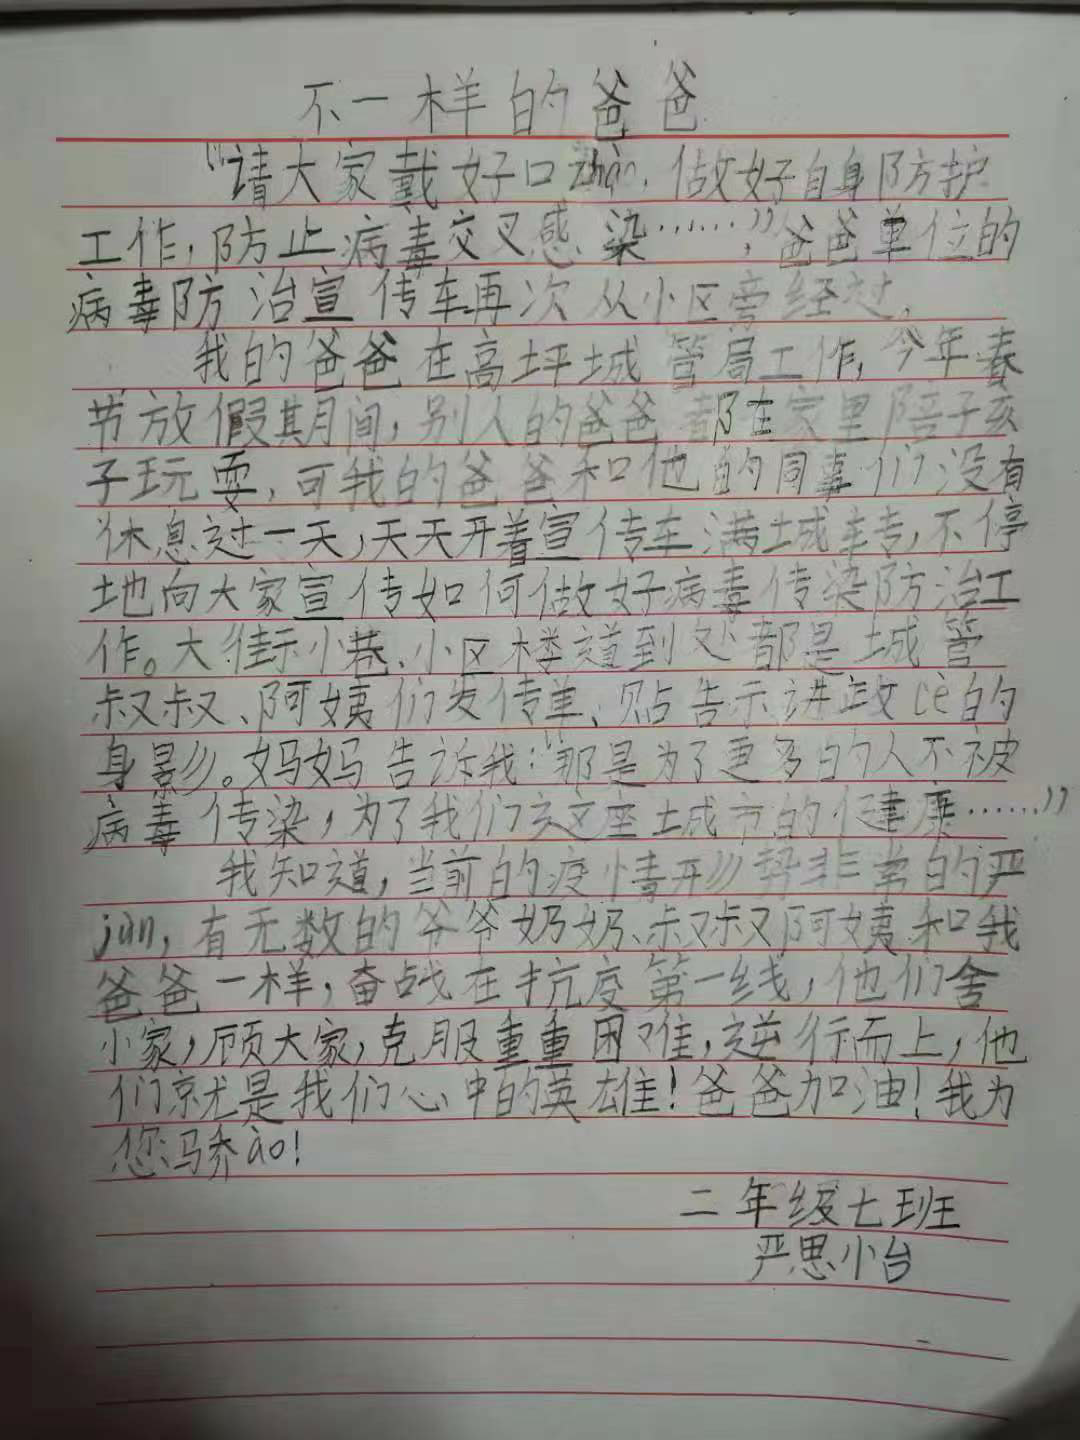 不一样的爸爸
“请大家戴好口zhào,做好自身防护
工作,防止病毒交叉感染……,”爸爸单位的
病毒防治宣传车再次从小区旁经过.
我的爸爸在高坪城管局工作,今年春
节放假期间,别人的爸爸都在家里陪子孩
子玩耍,可我的爸爸和他的同事们没有
休息过一天,天天开着宣传车满城转,不停
地向大家宣传如何做好病毒传染防治工
作。大街小巷、小区楼道到处都是城管
叔叔、阿姨们发传单、贴告示讲政cè的
身影。妈妈告诉我:“那是为了更多的人不被
病毒传染,为了我们这座城市的健康……”
我知道,当前的疫情形势非常的严
jùn,有无数的爷爷奶奶、叔叔阿姨和我
爸爸一样,奋战在抗疫第一线,他们舍
小家,顾大家,克服重重困难,逆行而上,他
们就是我们心中的英雄!爸爸加油!我为
您骄ào!
二年级七班
严思小台